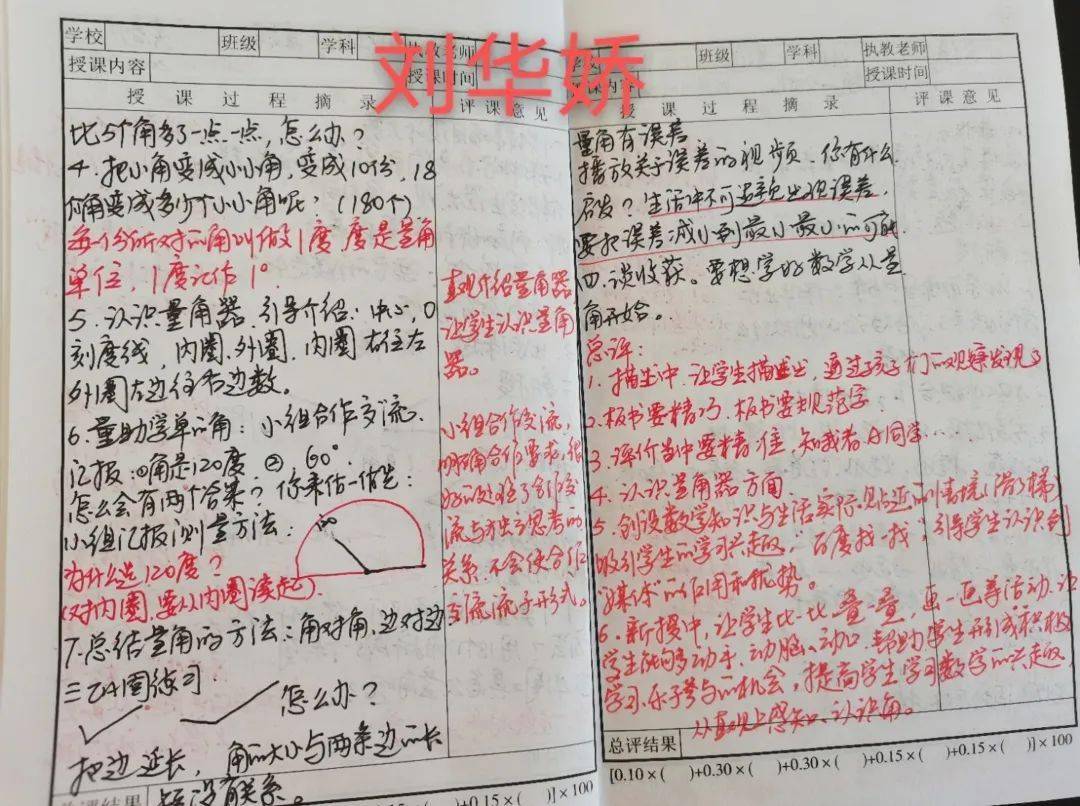 刘华娇
学校 班级 学科 执教老师
授课内容 授课时间
授课过程摘录 评课意见
比5个角多了一点一点，怎么办？
4.把小角变成小小角，变成10份，18
个角变成多少个小小角呢？（180个）
每一个分所对的角叫做1度 度是量角
单位，1度记作1°
5.认识量角器.引导介绍：中心，0
刻度线，内圈.外圈.内圈右往左
外圈左边往右边数。
6.量助学单的角：小组合作交流.
汇报：①角是120度 ② 60°
怎么会有两个答案？你来估一估先：
小组汇报测量方法：
为什么选120度？
（对内圈，要从内圈读起）
7.总结量角的方法：角对角，边对边
三、巩固练习：
怎么办？
把边延长，角的大小与两条边的长
短没有关系。
直观介绍量角器
让学生认识量角
器。
小组合作交流，
明确合作要求，
流与独立思考的
关系.不会使合作
交流流于形式。
总评结果
+0.15×( )]×100
班级 学科 执教老师
课内容 授课时间
授课过程摘录 评课意见
量角有误差
播放关于误差的视频.你有什么
启发？生活中不可避免出现误差.
要把误差减小到最小最小的可能.
四.谈收获。要想学好数学从量
角开始。
总评：
1.描生中.让学生描述出，通过孩子们的观察发现了
2.板书要精巧.板书要规范字
3.评价当中要精准.知我者A同学…
4.认识量角器方面
5.创设数学知识与生活实际 贴近的情境（滑梯）
吸引学生的学习兴趣，“百度找一找”，引导学生认识到
“媒体”的应用和优势。
6.新授中，让学生比一比 量一量，画一画等活动，让
学生能够动手、动脑、动口，帮助学生形成积极
学习、乐于参与的机会，提高学生学习数学的兴趣，
从直观上感知、认识角。
总评结果
[0.10×( )+0.30×( )+0.30×( )+0.15×( )+0.15×( )]×100